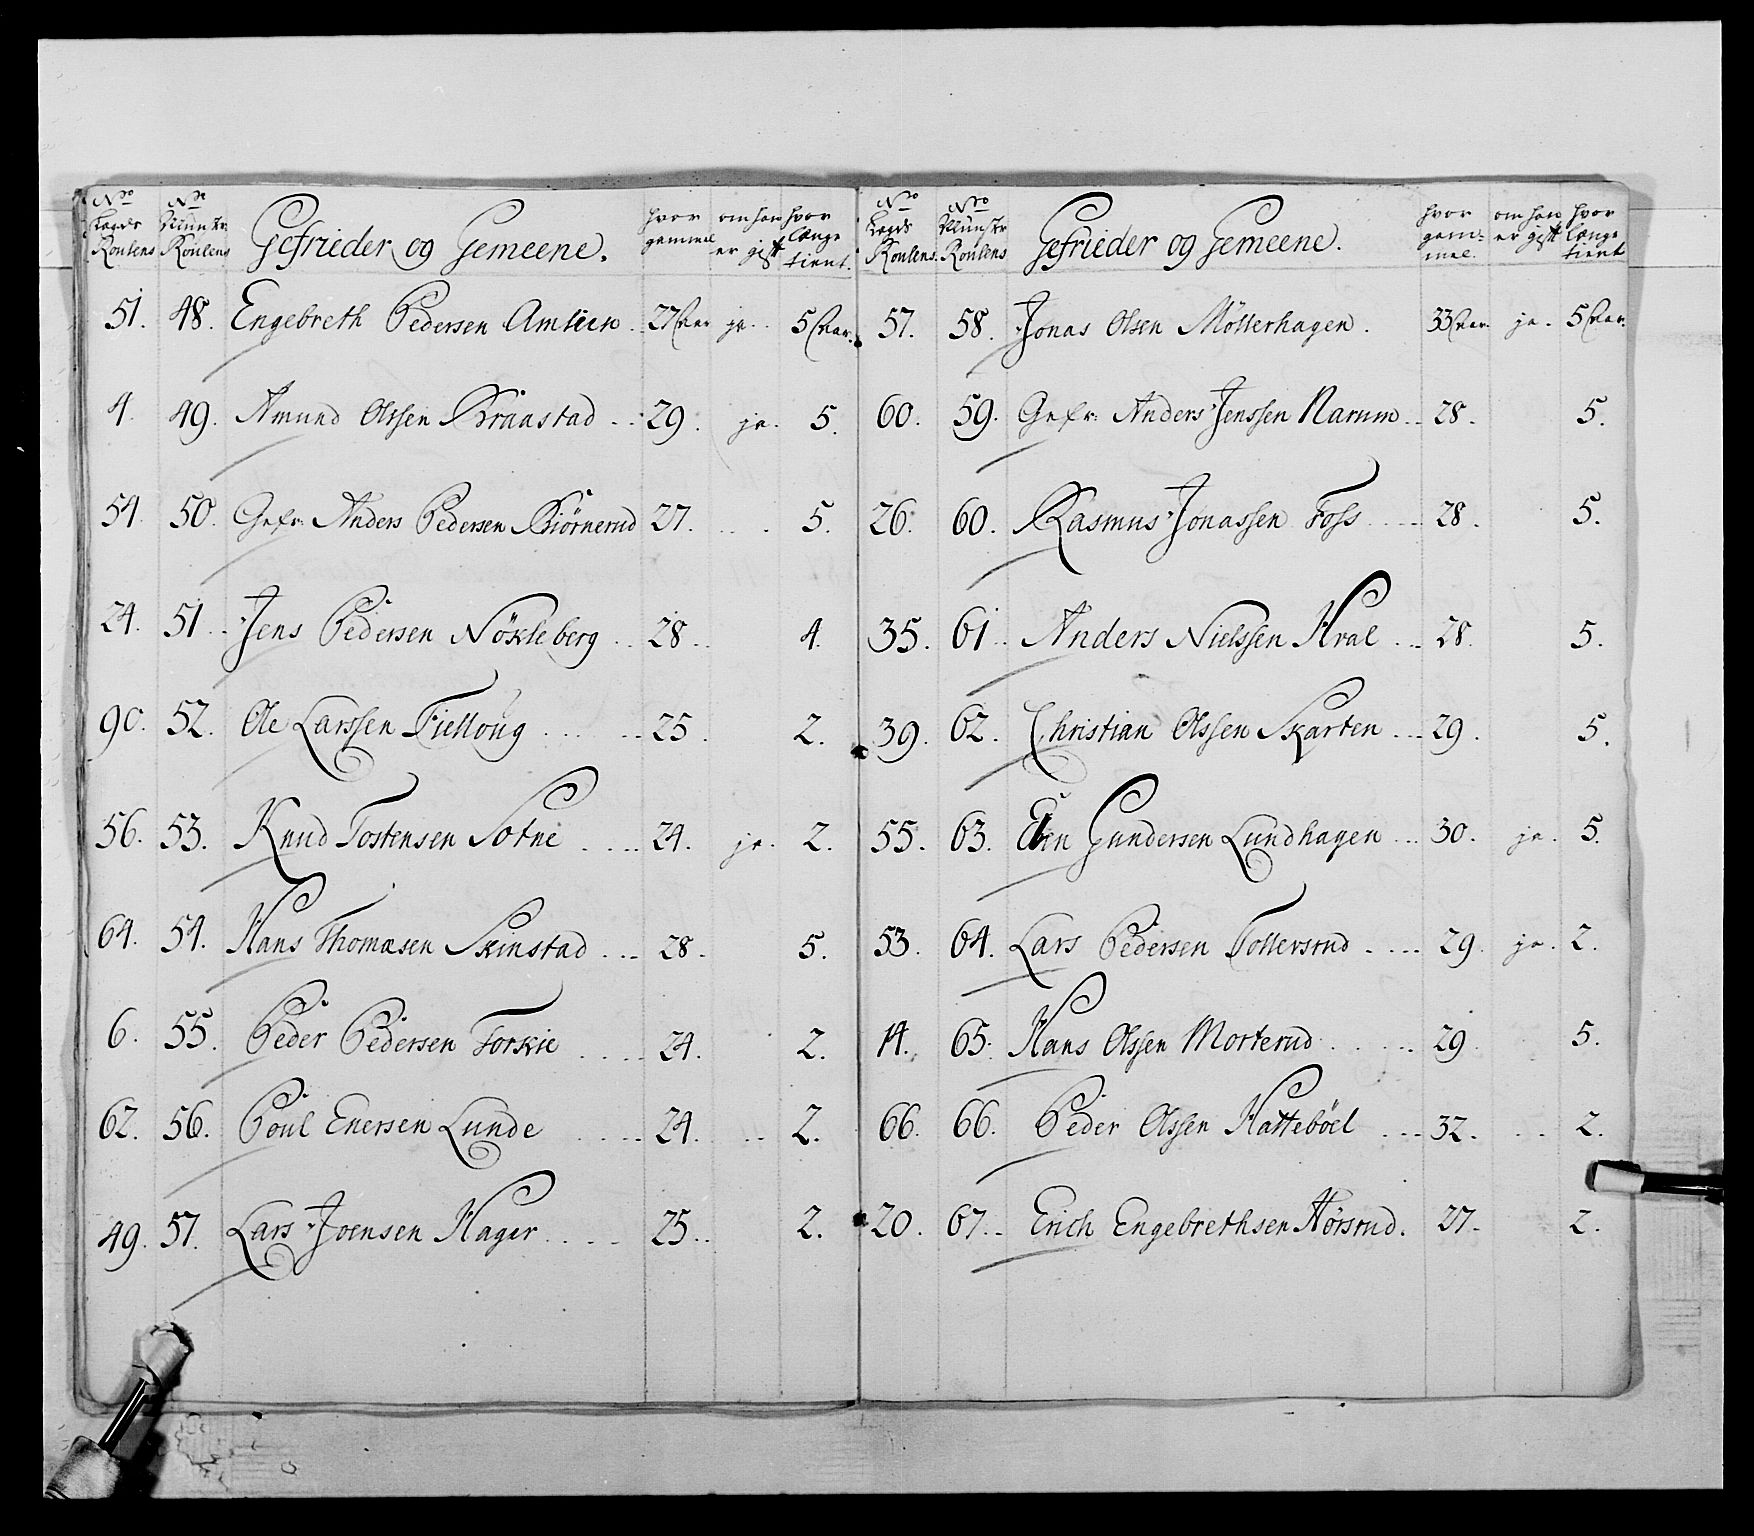 No Legds Roulens No Münstr: Roulens Gefrieder og Gemeene. hvor gammel om han er gift hvor længe tient.
51. 48. Engebreth Pedersen Amlien. 27 Aar ja. 5 Aar.
4. 49. Amund Olssen Braastad 29. ja. 5.
54. 50. Gefr: Anders Pedersen Biörnerud 27. 5.
24. 51. Jens Pedersen Nöxleberg 28. 4.
90. 52. Ole Larssen Fielloug 25. 2.
56. 53. Knud Tostensen Sotne 24. ja. 2.
64. 54. Hans Thomæsen Skinstad 28. 5.
6. 55. Peder Pedersen Torskie 24. 2.
62. 56. Poul Enersen Lunde 24. 2.
49. 57. Lars Joensen Hager 25. 2.
No Legds Roulens No Münstr Roulens Gefrieder og Gemeene. hvor gam= mel. om han er gift hvor længe tient
57. 58. Jonas Olsen Möllerhagen. 33 Aar. ja. 5 Aar.
60. 59. Gefr: Anders Jenssen Narum 28. 5.
26. 60. Rasmus Jonassen Foss 28. 5.
35. 61. Anders Nielssen Hval 28. 5.
39. 62. Christian Olssen Skarten 29. 5.
55. 63. Gundersen Lundhagen 30. ja. 5.
53. 64. Lars Pedersen Tollersrud 29. ja. 2.
14. 65. Hans Olssen Morterud 29 5.
66. 66. Peder Olssen Hatteböel 32. 2.
20. 67. Erich Engebrethsen Hörsrud. 27. 2.